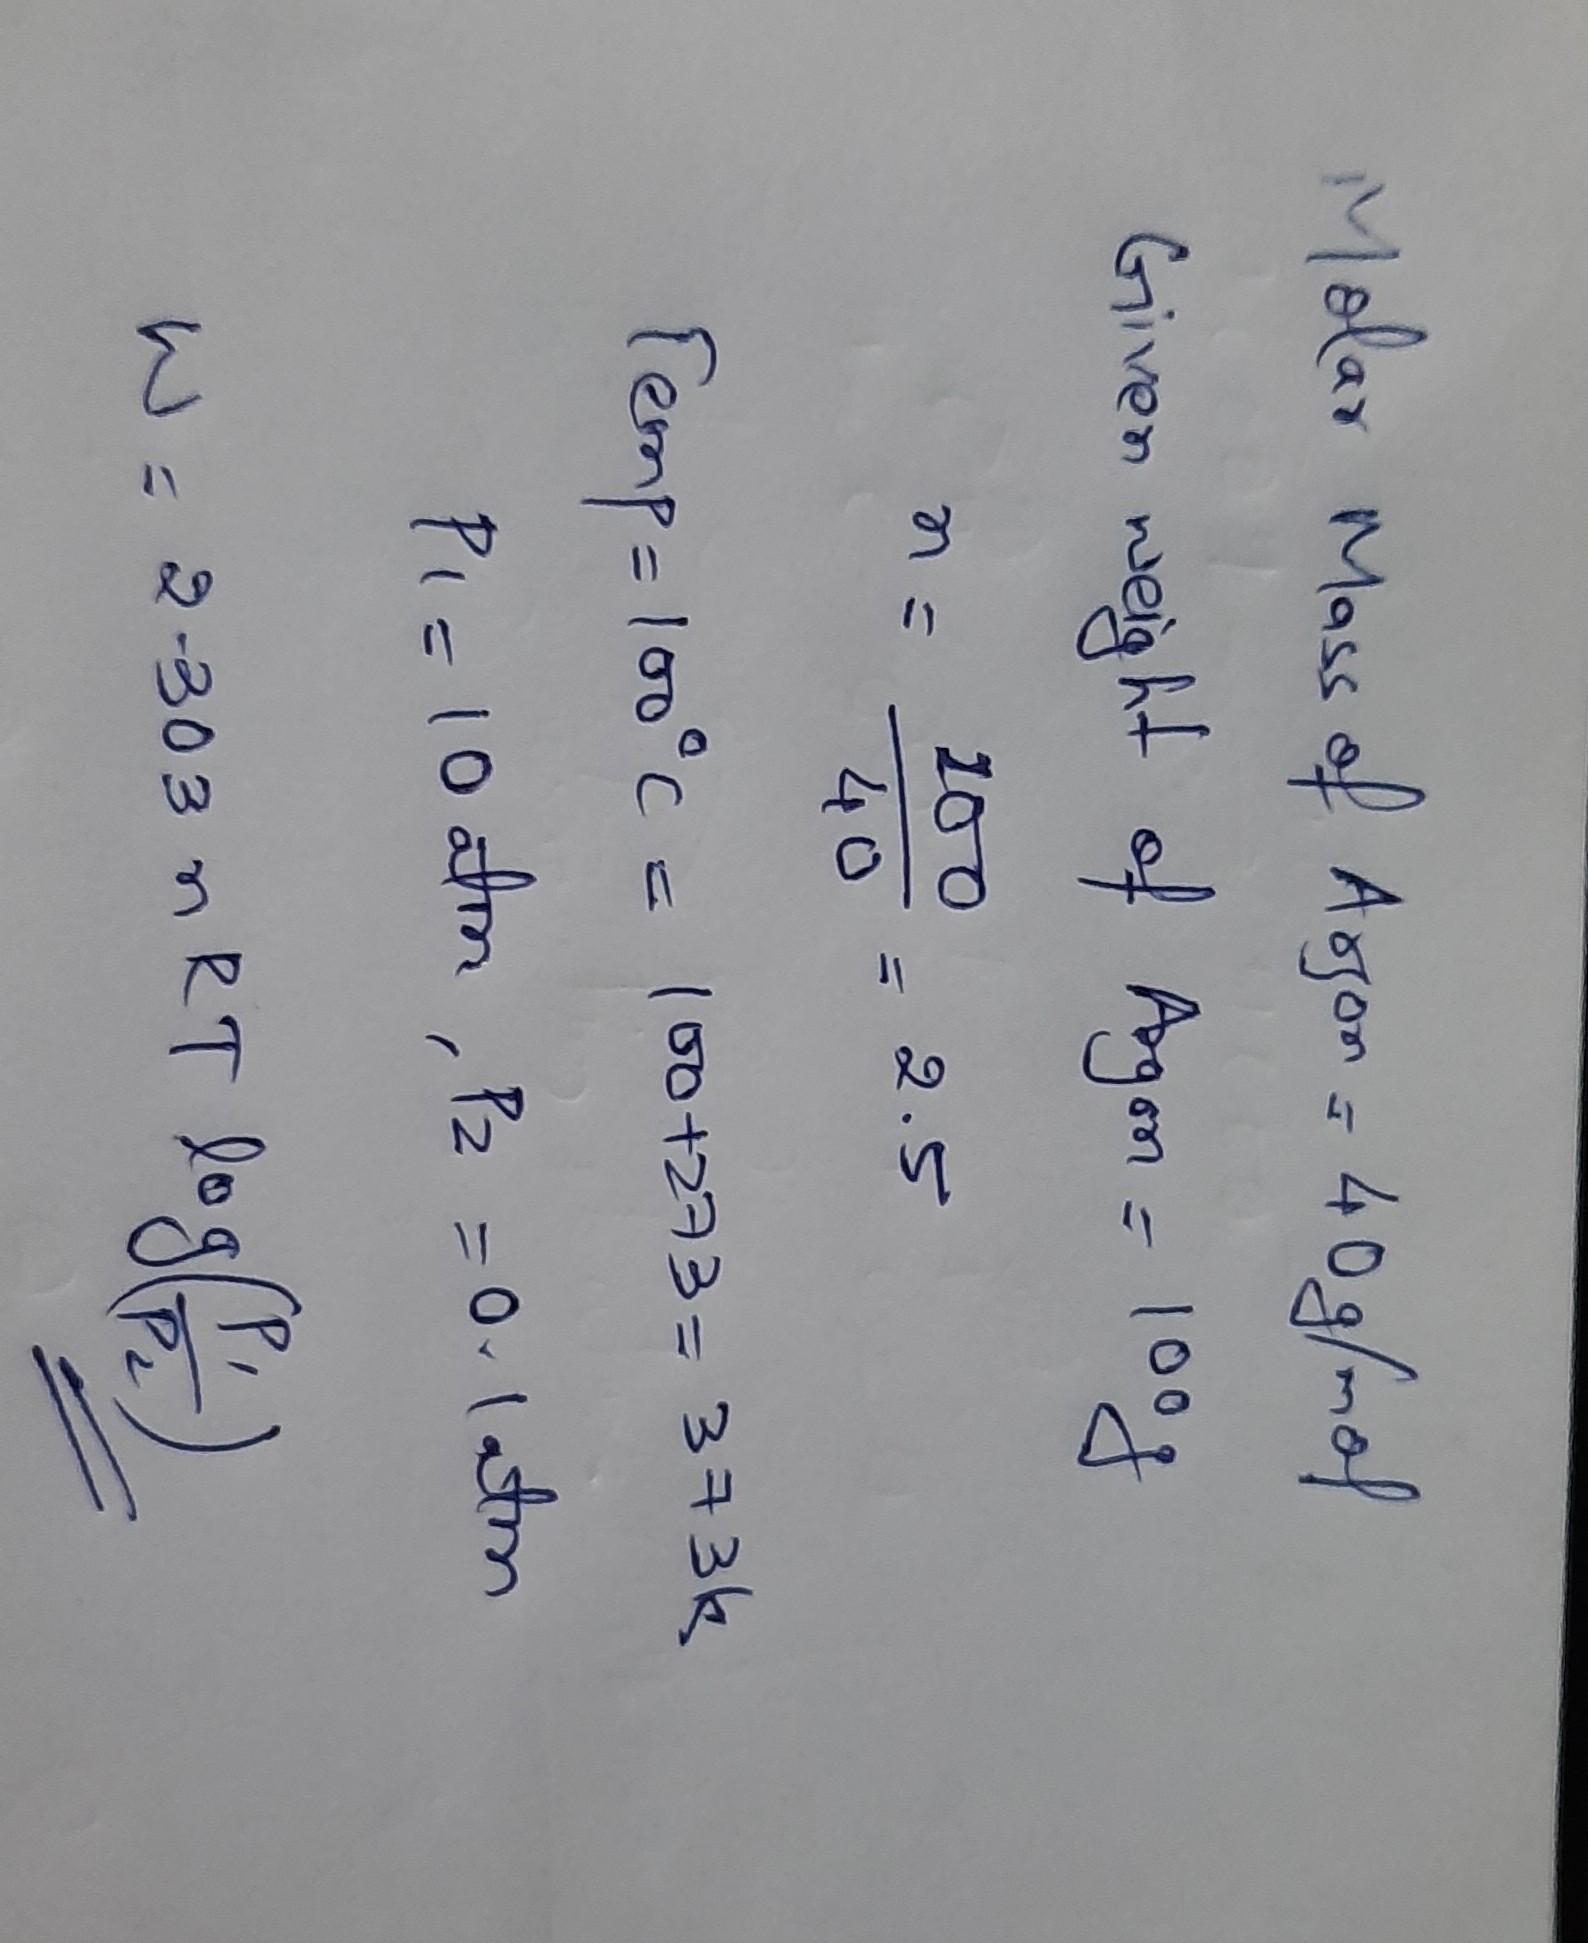 Molar Mass of Argon = 40g/mol
Given weight of Argon = 100g
n = 100/40 = 2.5
Temp = 100°C = 100+273 = 373k
P1 = 10 atm, P2 = 0.1 atm
W = 2.303 n RT log(P1/P2)